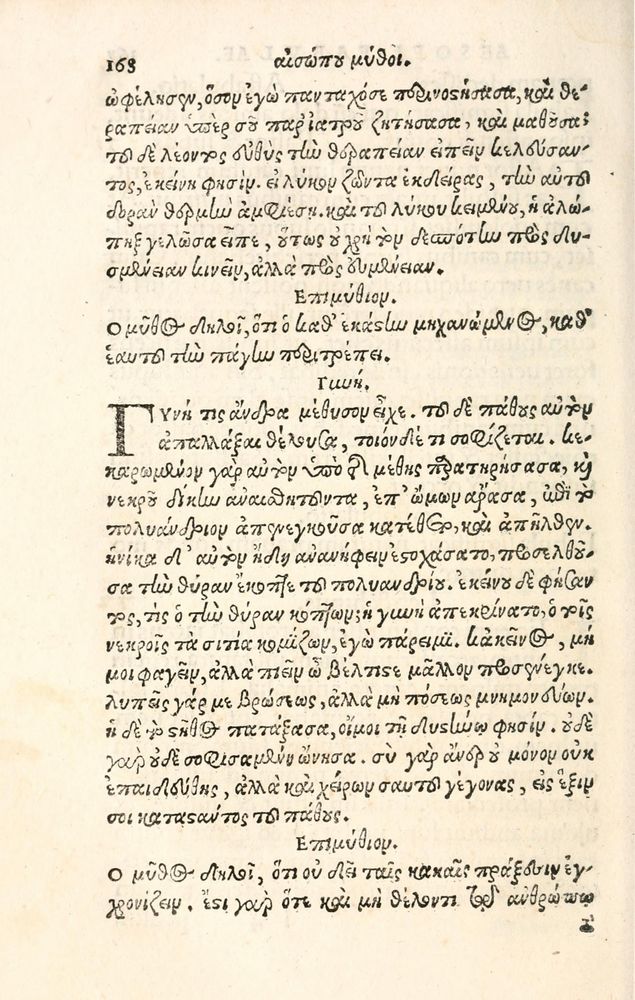 168 αἰσώπου μῦθοι.
ὠφέλησεν, ὅσον ἐγὼ πανταχόσε περινοστήσασα, καὶ θε-
ραπείαν ὑπὲρ σοῦ παρ' ἰατροῦ ζητήσασα, καὶ μαθοῦσα;
τοῦ δὲ λέοντος εὐθὺς τὴν θεραπείαν εἰπεῖν κελεύσαν-
τος, ἐκείνη φησίν. εἰ λύκον ζῶντα ἐκδείρας, τὴν αὐτοῦ
δορὰν θερμὴν ἀμφιέσῃ. καὶ τοῦ λύκου κειμένου, ἡ ἀλώ-
πηξ γελῶσα εἶπε, οὕτως οὐ χρὴ τὸν δεσπότην πρὸς δυ-
σμένειαν κινεῖν, ἀλλὰ πρὸς εὐμένειαν.
Επιμύθιον.
Ο μῦθος δηλοῖ, ὅτι ὁ καθ' ἑκάστην μηχανώμενος, καθ'
ἑαυτοῦ τὴν πάγην περιτρέπει.
Γυνή.
ΓΥνή τις ἄνδρα μέθυσον εἶχε. τοῦ δὲ πάθους αὐτὸν
ἀπαλλάξαι θέλουσα, τοιόνδέ τι σοφίζεται. κε-
καρωμένον γὰρ αὐτὸν ὑπὸ τῆς μέθης παρατηρήσασα, καὶ
νεκροῦ δίκην ἀναισθητοῦντα, ἐπ' ὤμων ἄρασα, ἐπὶ τὸ
πολυάνδριον ἀπενεγκοῦσα κατέθετο, καὶ ἀπῆλθεν.
ἡνίκα δ' αὐτὸν ἤδη ἀνανήφειν ἐστοχάσατο, προσελθοῦ-
σα τὴν θύραν ἔκοπτε τοῦ πολυανδρίου. ἐκείνου δὲ φήσαν
τος, τίς ὁ τὴν θύραν κόπτων; ἡ γυνὴ ἀπεκρίνατο, ὁ τοῖς
νεκροῖς τὰ σιτία κομίζων, ἐγὼ πάρειμι. κἀκεῖνος, μή
μοι φαγεῖν, ἀλλὰ πιεῖν ὦ βέλτιστε μᾶλλον προσένεγκε.
λυπεῖς γάρ με βρώσεως, ἀλλὰ μὴ πόσεως μνημονεύων.
ἡ δὲ τὸ στῆθος πατάξασα, οἴμοι τῇ δυστήνῳ φησίν. οὐδὲ
γὰρ οὐδὲ σοφισαμένη ὤνησα. σὺ γὰρ ἄνερ οὐ μόνον οὐκ
ἐπαιδεύθης, ἀλλὰ καὶ χείρων σαυτοῦ γέγονας, εἰς ἕξιν
σοι καταστάντος τοῦ πάθους.
Επιμύθιον.
Ο μῦθος δηλοῖ, ὅτι οὐ δεῖ ταῖς κακαῖς πράξεσιν ἐγ-
χρονίζειν. ἔστι γὰρ ὅτε καὶ μὴ θέλοντι τῷ ἀνθρώπῳ